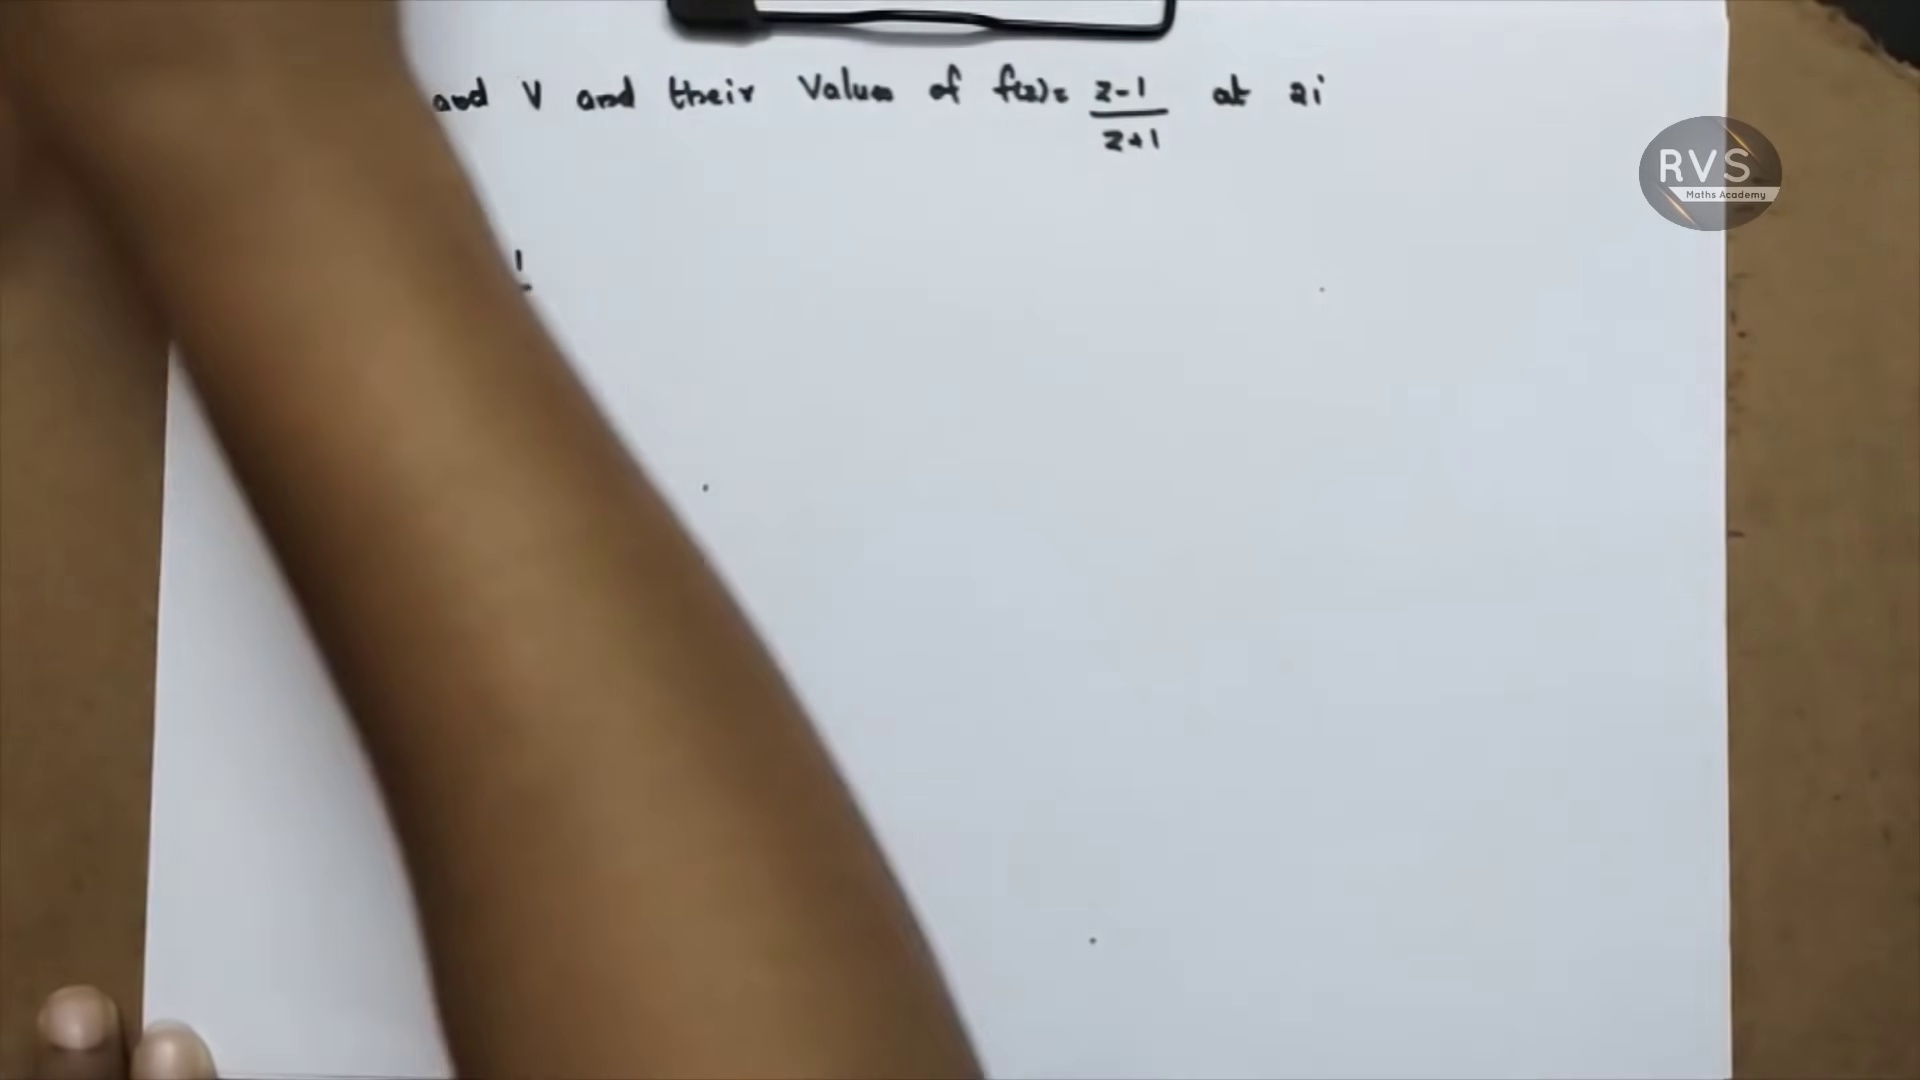 and V and their Values of f(z)= z-1 / z+1 at 2i
RVS
Maths Academy
1